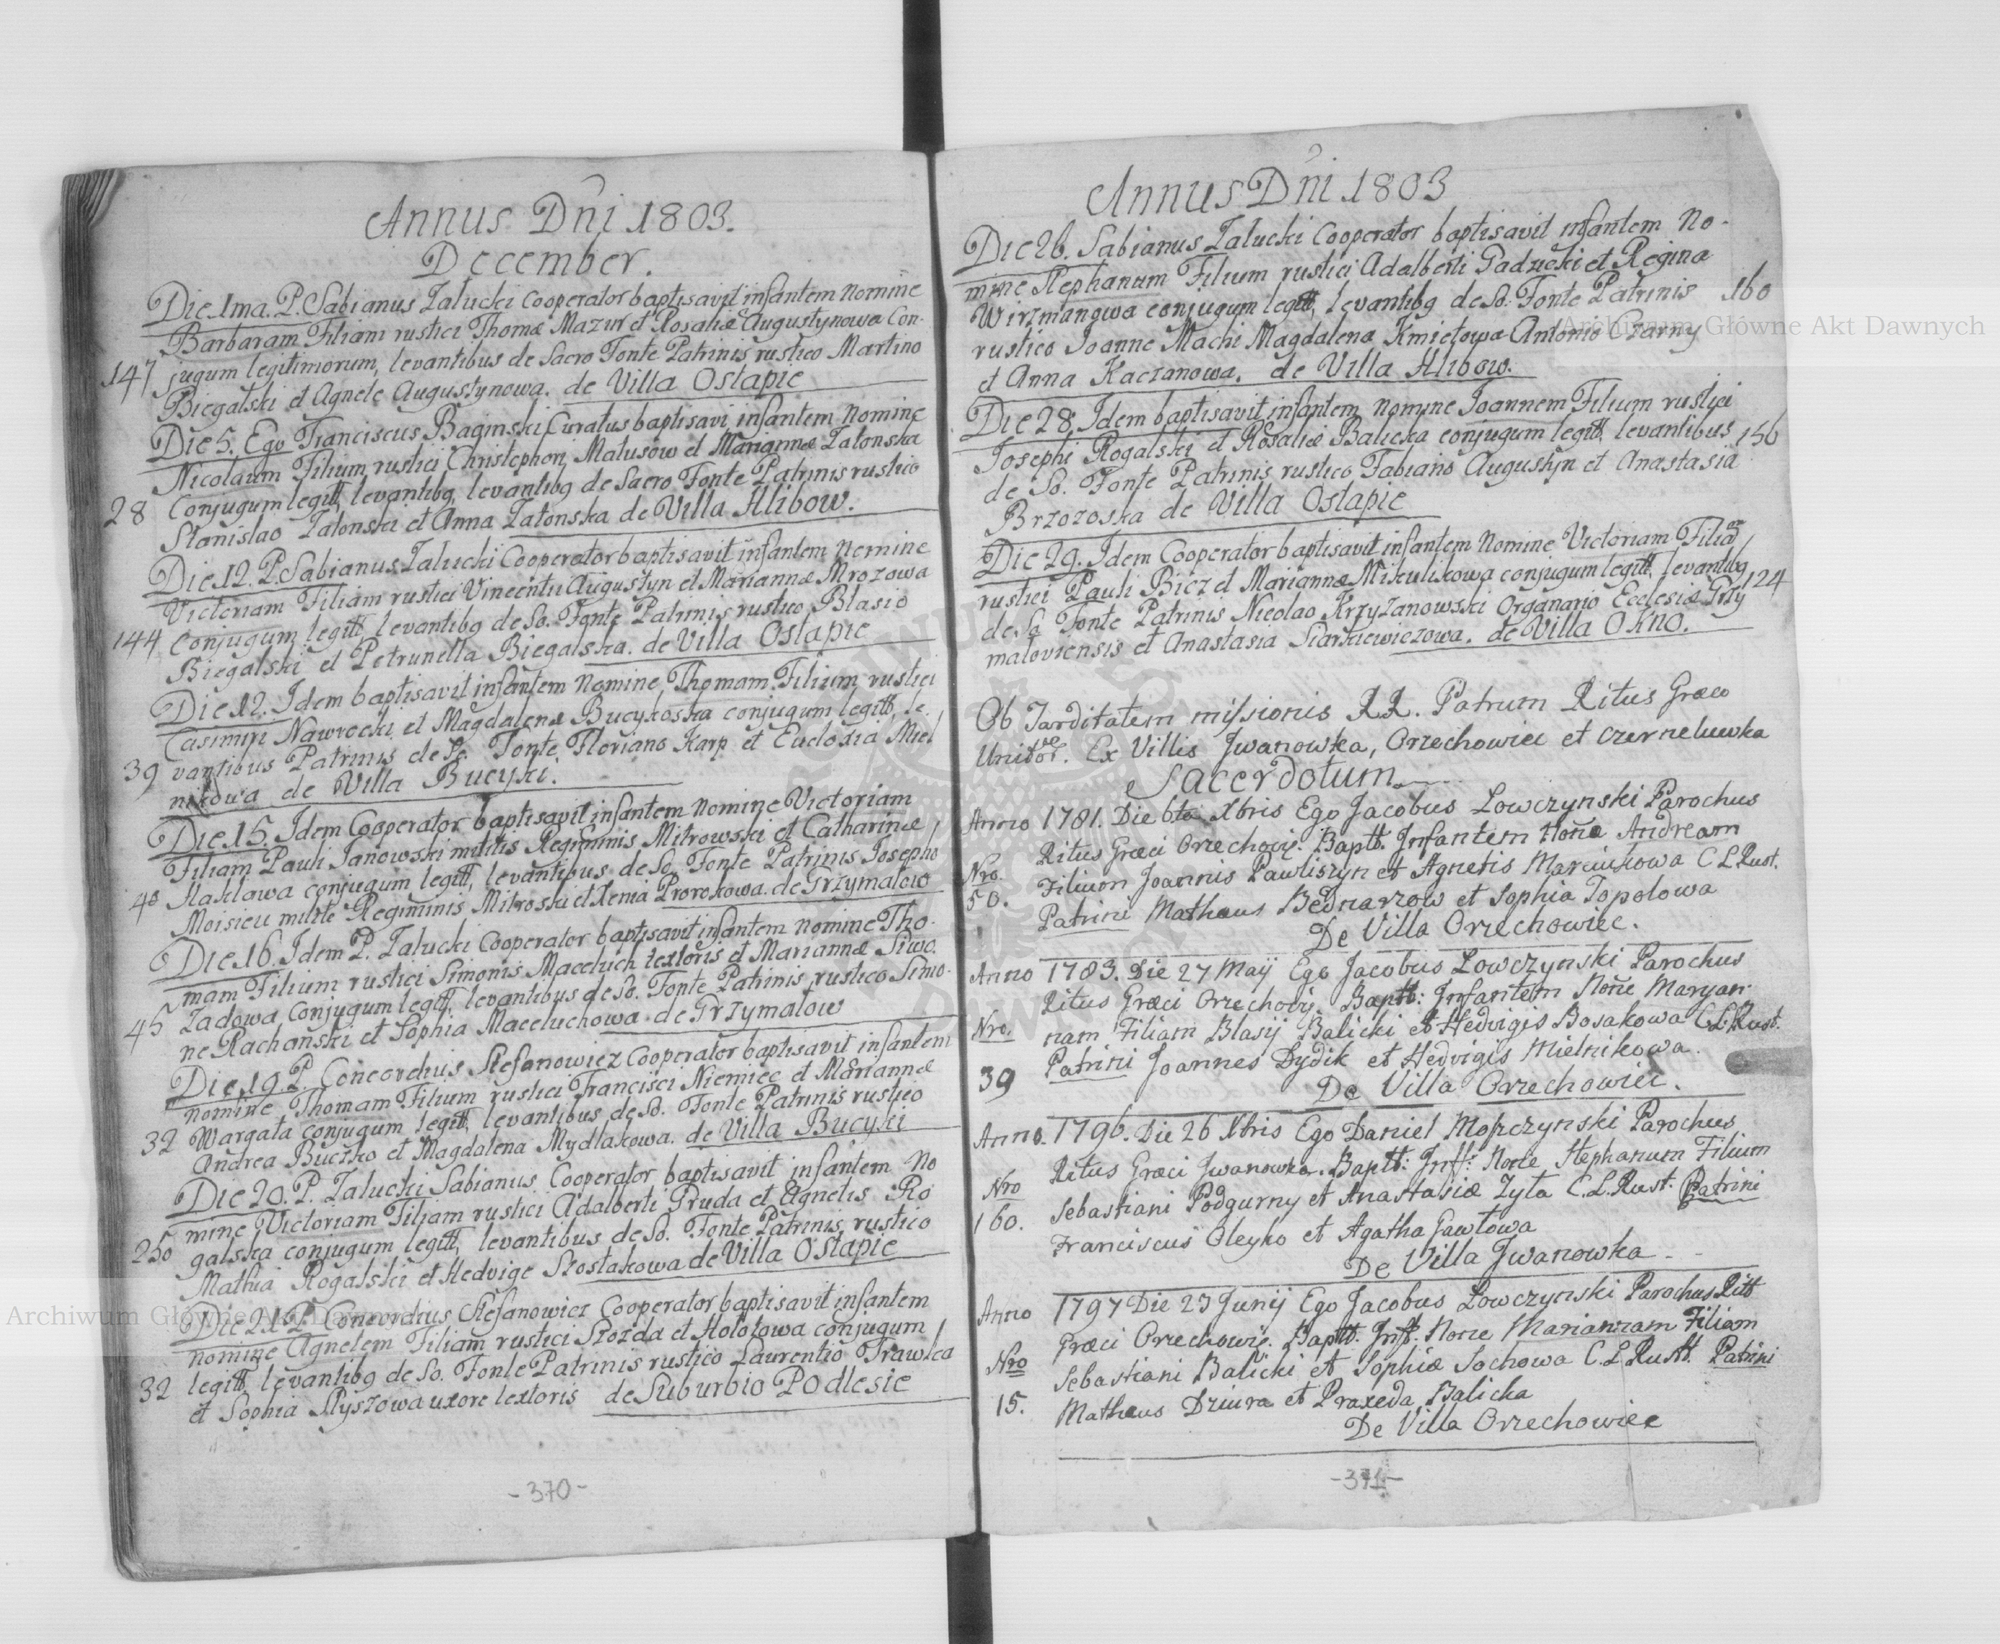 Annus Dni 1803.
December.
Die 1ma. P. Sabianus Zalucki Cooperator baptisavit infantem Nomine
Barbaram Filiam rustici Thomæ Mazur et Rosaliæ Augustynowa Con-
147 jugum legitimorum, levantibus de Sacro Fonte Patrinis rustico Martino
Biegalski et Agnete Augustynowa. de Villa Ostapie
Die 5. Ego Franciscus Baginski Curatus baptisavi infantem Nomine
Nicolaum Filium rustici Christophori Matusow et Mariannæ Zatonska
28 Conjugum legitt, levantibg levantibg de Sacro Fonte Patrinis rustico
Stanislao Zatonski et Anna Zatonska de Villa Hlibow.
Die 12. P. Sabianus Zalucki Cooperator baptisavit infantem Nomine
Victoriam Filiam rustici Vincentii Augustyn et Mariannæ Mrozowa
144 Conjugum legitt levantibg de So. Fonte Patrinis rustico Blasio
Biegalski et Petrunella Biegalska. de Villa Ostapie
Die 12. Idem baptisavit infantem Nomine Thomam Filium rustici
Casimiri Nawrocki et Magdalenæ Bucykoska conjugum legitt, le.
39 vantibus Patrinis de So Fonte Floriano Karp et Eudoxia Miel
nikowa de Villa Bucyki.
Die 15. Idem Cooperator baptisavit infantem Nomine Victoriam
Filiam Pauli Janowski militis Regiminis Mitrowski et Catharinæ
40 Haklawa conjugum legitt, levantibus de So. Fonte Patrinis Josepho
Moisieu milite Regiminis Mitroski et Xenia Prorokowa. de Grzymalow
Die 16. Idem P. Zalucki Cooperator baptisavit infantem Nomine Tho-
mam Filium rustici Simonis Maceluch textoris et Mariannæ Siwo.
45 Zadowa Conjugum legitt, levantibus de So. Fonte Patrinis rustico Simo-
ne Rachanski et Sophia Maceluchowa de Grzymalow
Die 19. P. Concordius Stefanowicz Cooperator baptisavit infantem
nomine Thomam Filium rustici Francisci Niemiec et Mariannæ
32 Wargata conjugum legitt, levantibus de So. Fonte Patrinis rustico
Andrea Buczko et Magdalena Mydlakowa. de Villa Bucyki
Die 20. P. Zalucki Sabianus Cooperator baptisavit infantem No
mine Victoriam Filiam rustici Adalberti Pruda et Agnetis Ro
250 galska conjugum legitt, levantibus de So. Fonte Patrinis rustico
Mathia Rogalski et Hedvige Szostakowa de Villa Ostapie
Die 21. P. Concordius Stefanowicz Cooperator baptisavit infantem
nomine Agnetem Filiam rustici Szozda et Holotowa conjugum
32 legitt, levantibg de So. Fonte Patrinis rustico Laurentio Frawka
et Sophia Slyszowa uxore textoris de Suburbio Podlesie
-370-
Annus Dni 1803
Die 26. Sabianus Zalucki Cooperator baptisavit infantem No-
mine Stephanum Filium rustici Adalberti Gadzicki et Regina
Wirzmangwa conjugum legitt, levantibg de So. Fonte Patrinis 160
rustico Joanne Machi Magdalena Kmietowa Antonio Czarny
et Anna Kaczanowa. de Villa Hlibow.
Die 28. Idem baptisavit infantem nomine Joannem Filium rustici
Josephi Rogalski et Rosaliæ Balicka conjugum legitt, levantibus 156
de So. Fonte Patrinis rustico Fabiano Augustyn et Anastasia
Brzozoska de Villa Ostapie
Die 29. Idem Cooperator baptisavit infantem Nomine Victoriam Filiam
rustici Pauli Bicz et Mariannæ Mikulikowa conjugum legitt, levantibg 124
de So Fonte Patrinis Nicolao Krzyzanowski Organario Ecclesiæ Grzy
maloviensis et Anastasia Siarkiewiczowa. de Villa Okno.
Ob Tarditatem missionis RR. Patrum Ritus Græco
Unitor. Ex Villis Jwanowka, Orzechowiec et Czerneluwka
Sacerdotum.
Anno 1781. Die 6ta Xbris Ego Jacobus Lowczynski Parochus
Ritus Græci Orzechovij. Baptt. Infantem Noñe Andream
Nro. Filium Joannis Pawliszyn et Agnetis Marciukowa C L Rust.
50. Patrini Matheus Bednarzow et Sophia Topolowa
De Villa Orzechowiec.
Anno 1783. Die 27 Maij Ego Jacobus Lowczynski Parochus
Ritus Græci Orzechovij. Baptt: Infantem Noñe Maryan-
Nro. nam Filiam Blasij Balicki et Hedvigis Bosakowa C L Rust.
39 Patrini Joannes Dydik et Hedvigis Mielnikowa.
De Villa Orzechowiec.
Anno. 1796. Die 26 Xbris Ego Daniel Mopczynski Parochus
Ritus Græci Jwanowka. Baptt: Inff: Noñe Stephanum Filium
Nro Sebastiani Podgurny et Anastasiæ Zyta C. L. Rust. Patrini
160. Franciscus Oleyko et Agatha Gawlowa
De Villa Jwanowka - -
Anno 1797 Die 23 Junij Ego Jacobus Lowczynski Parochus Ritt
Græci Orzechowij. Baptt. Inff. Noñe Mariannam Filiam
Nro Sebastiani Balicki et Sophiæ Sochowa C. L Rustt. Patrini
15. Matheus Dziura et Praxeda Balicka
De Villa Orzechowiec
-371-
Archiwum Główne Akt Dawnych
Archiwum Główne Akt Dawnych